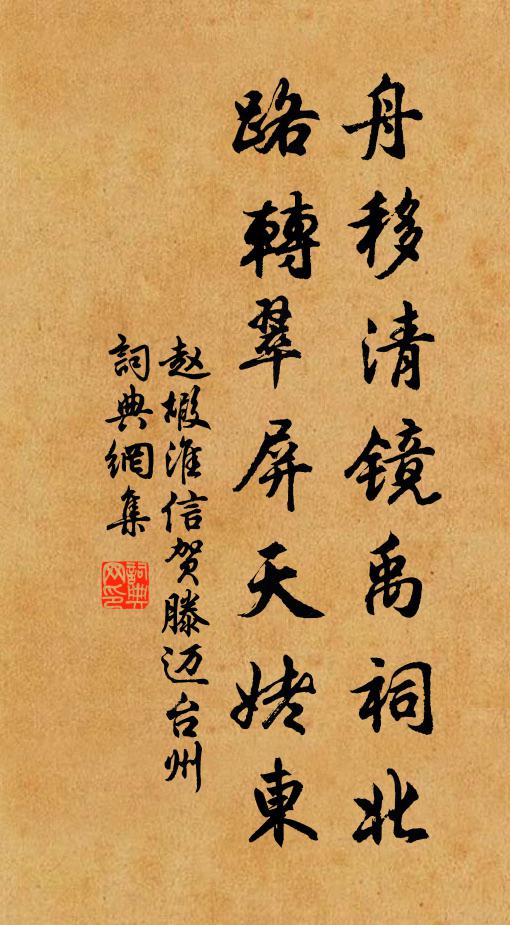 舟移清镜禹祠北
路轉翠屏天姥東
赵椴淮信贺滕迈台州
詞典網集
詞典
网印